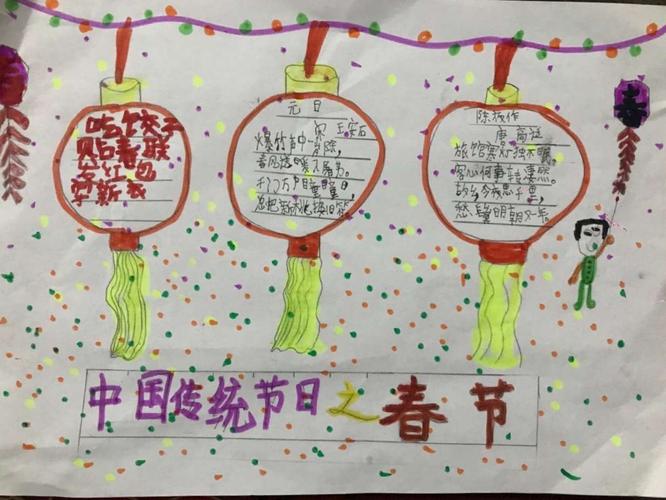 吃饺子
贴春联
红包
穿新衣
元日
宋 王安石
爆竹声中一岁除,
春风送暖入屠苏。
千门万户曈曈日,
总把新桃换旧符
除夜作
唐 高适
旅馆寒灯独不眠,
客心何事转凄然。
故乡今夜思千里,
鬓明朝又一年
春
中国传统节日之春节